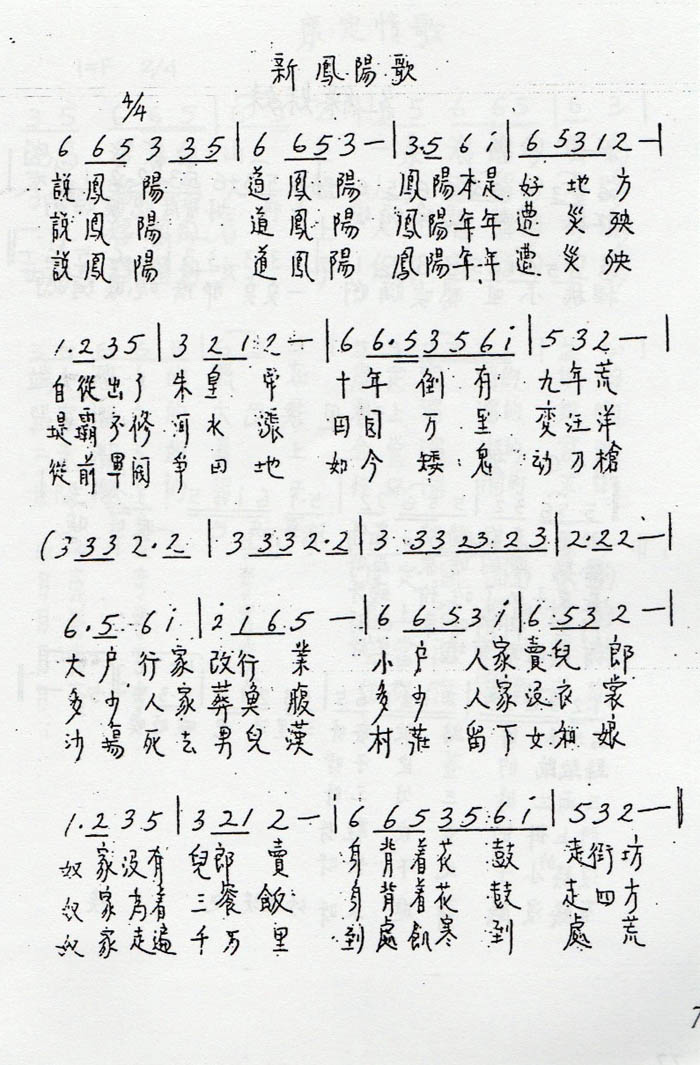 新鳳陽歌
4/4
6 6 5 3 3 5 | 6 6 5 3 — | 3·5 6 i | 6 5 3 1 2 — |
說鳳陽 道鳳陽 鳳陽本是好地方
說鳳陽 道鳳陽 鳳陽年年遭災殃
說鳳陽 道鳳陽 鳳陽年年遭災殃
1·2 3 5 | 3 2 1 2 — | 6 6·5 3 5 6 i | 5 3 2 — |
自從出了朱皇帝 十年倒有九年荒
堤霸不修河水漲 田园万里变汪洋
從前軍阀爭田地 如今矮鬼动刀槍
(3 3 3 2·2 | 3 3 3 2·2 | 3 3 3 2 3 2 3 | 2·2 2 — |
6·5 6 i | 2 i 6 5 — | 6 6 5 3 i | 6 5 3 2 — |
大户行家改行業 小户人家賣兒郎
多少人家葬魚腹 多少人家没衣裳
沙場死去男兒漢 村莊留下女和娘
1·2 3 5 | 3 2 1 2 — | 6 6 5 3 5 6 i | 5 3 2 — ‖
奴家没有兒郎賣 身背着花鼓走街坊
奴家为着三餐飯 身背着花鼓走四方
奴家走遍千万里 到處飢寒到處荒
7